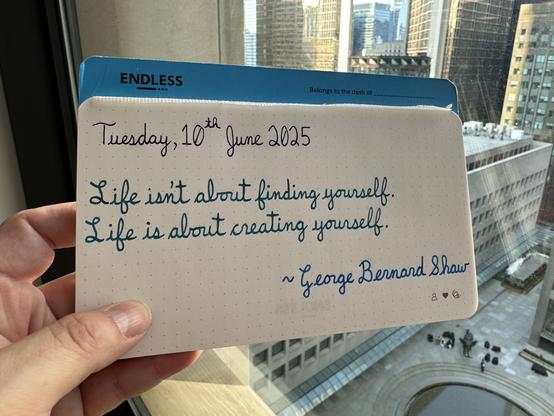 ENDLESS
Belongs to the desk of
Tuesday, 10th June 2025
Life isn't about finding yourself.
Life is about creating yourself.
~ George Bernard Shaw